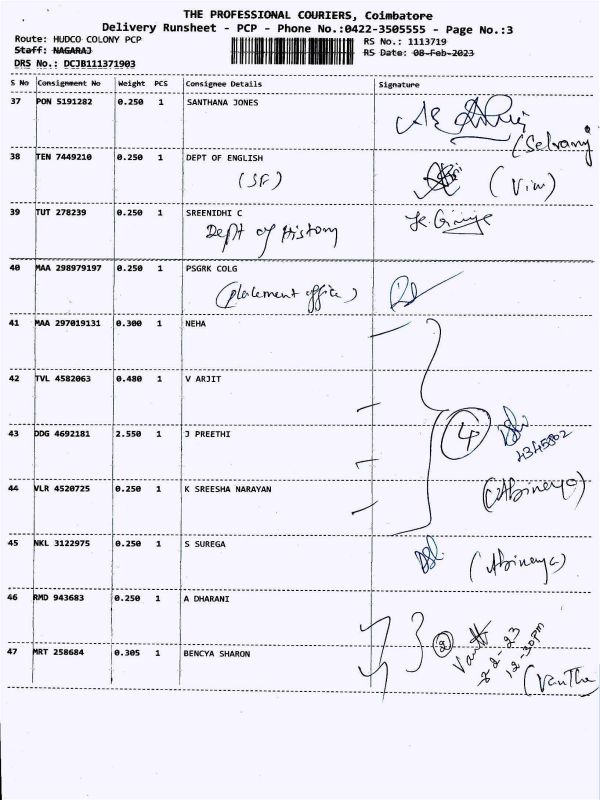 THE PROFESSIONAL COURIERS, Coimbatore
Delivery Runsheet - PCP - Phone No.:0422-3505555 - Page No.:3
Route: HUDCO COLONY PCP
RS No.: 1113719
Staff: NAGARAJ
RS Date: 08-Feb-2023
DRS No.: DCJB111371903
S No Consignment No Weight PCS Consignee Details Signature
37 PON 5191282 0.250 1 SANTHANA JONES
(Selvaraj
38 TEN 7449210 0.250 1 DEPT OF ENGLISH
(SF)
39 TUT 278239 0.250 1 SREENIDHI C
Dept of History
40 MAA 298979197 0.250 1 PSGRK COLG
(placement office)
41 MAA 297019131 0.300 1 NEHA
42 TVL 4582063 0.480 1 V ARJIT
43 DDG 4692181 2.550 1 J PREETHI
4
44 VLR 4520725 0.250 1 K SREESHA NARAYAN
(Abinaya)
45 NKL 3122975 0.250 1 S SUREGA
(Abinaya)
46 RMD 943683 0.250 1 A DHARANI
47 MRT 258684 0.305 1 BENCYA SHARON
2
12-30pm